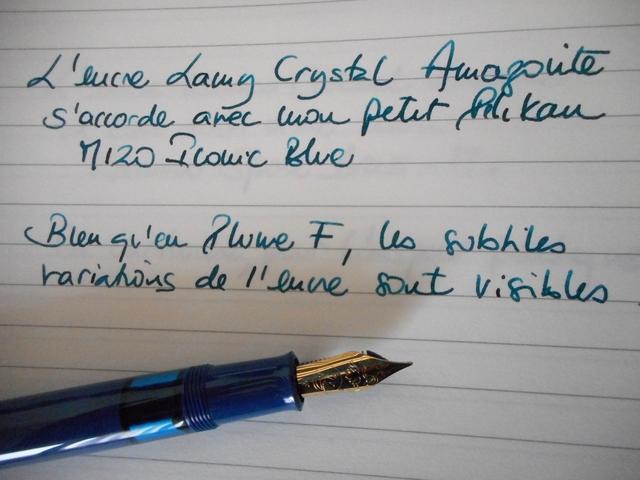 L'encre Lamy Crystal Amazonite
s'accorde avec mon petit Pelikan
M120 Iconic Blue
Bien qu'en Plume F, les subtiles
variations de l'encre sont visibles